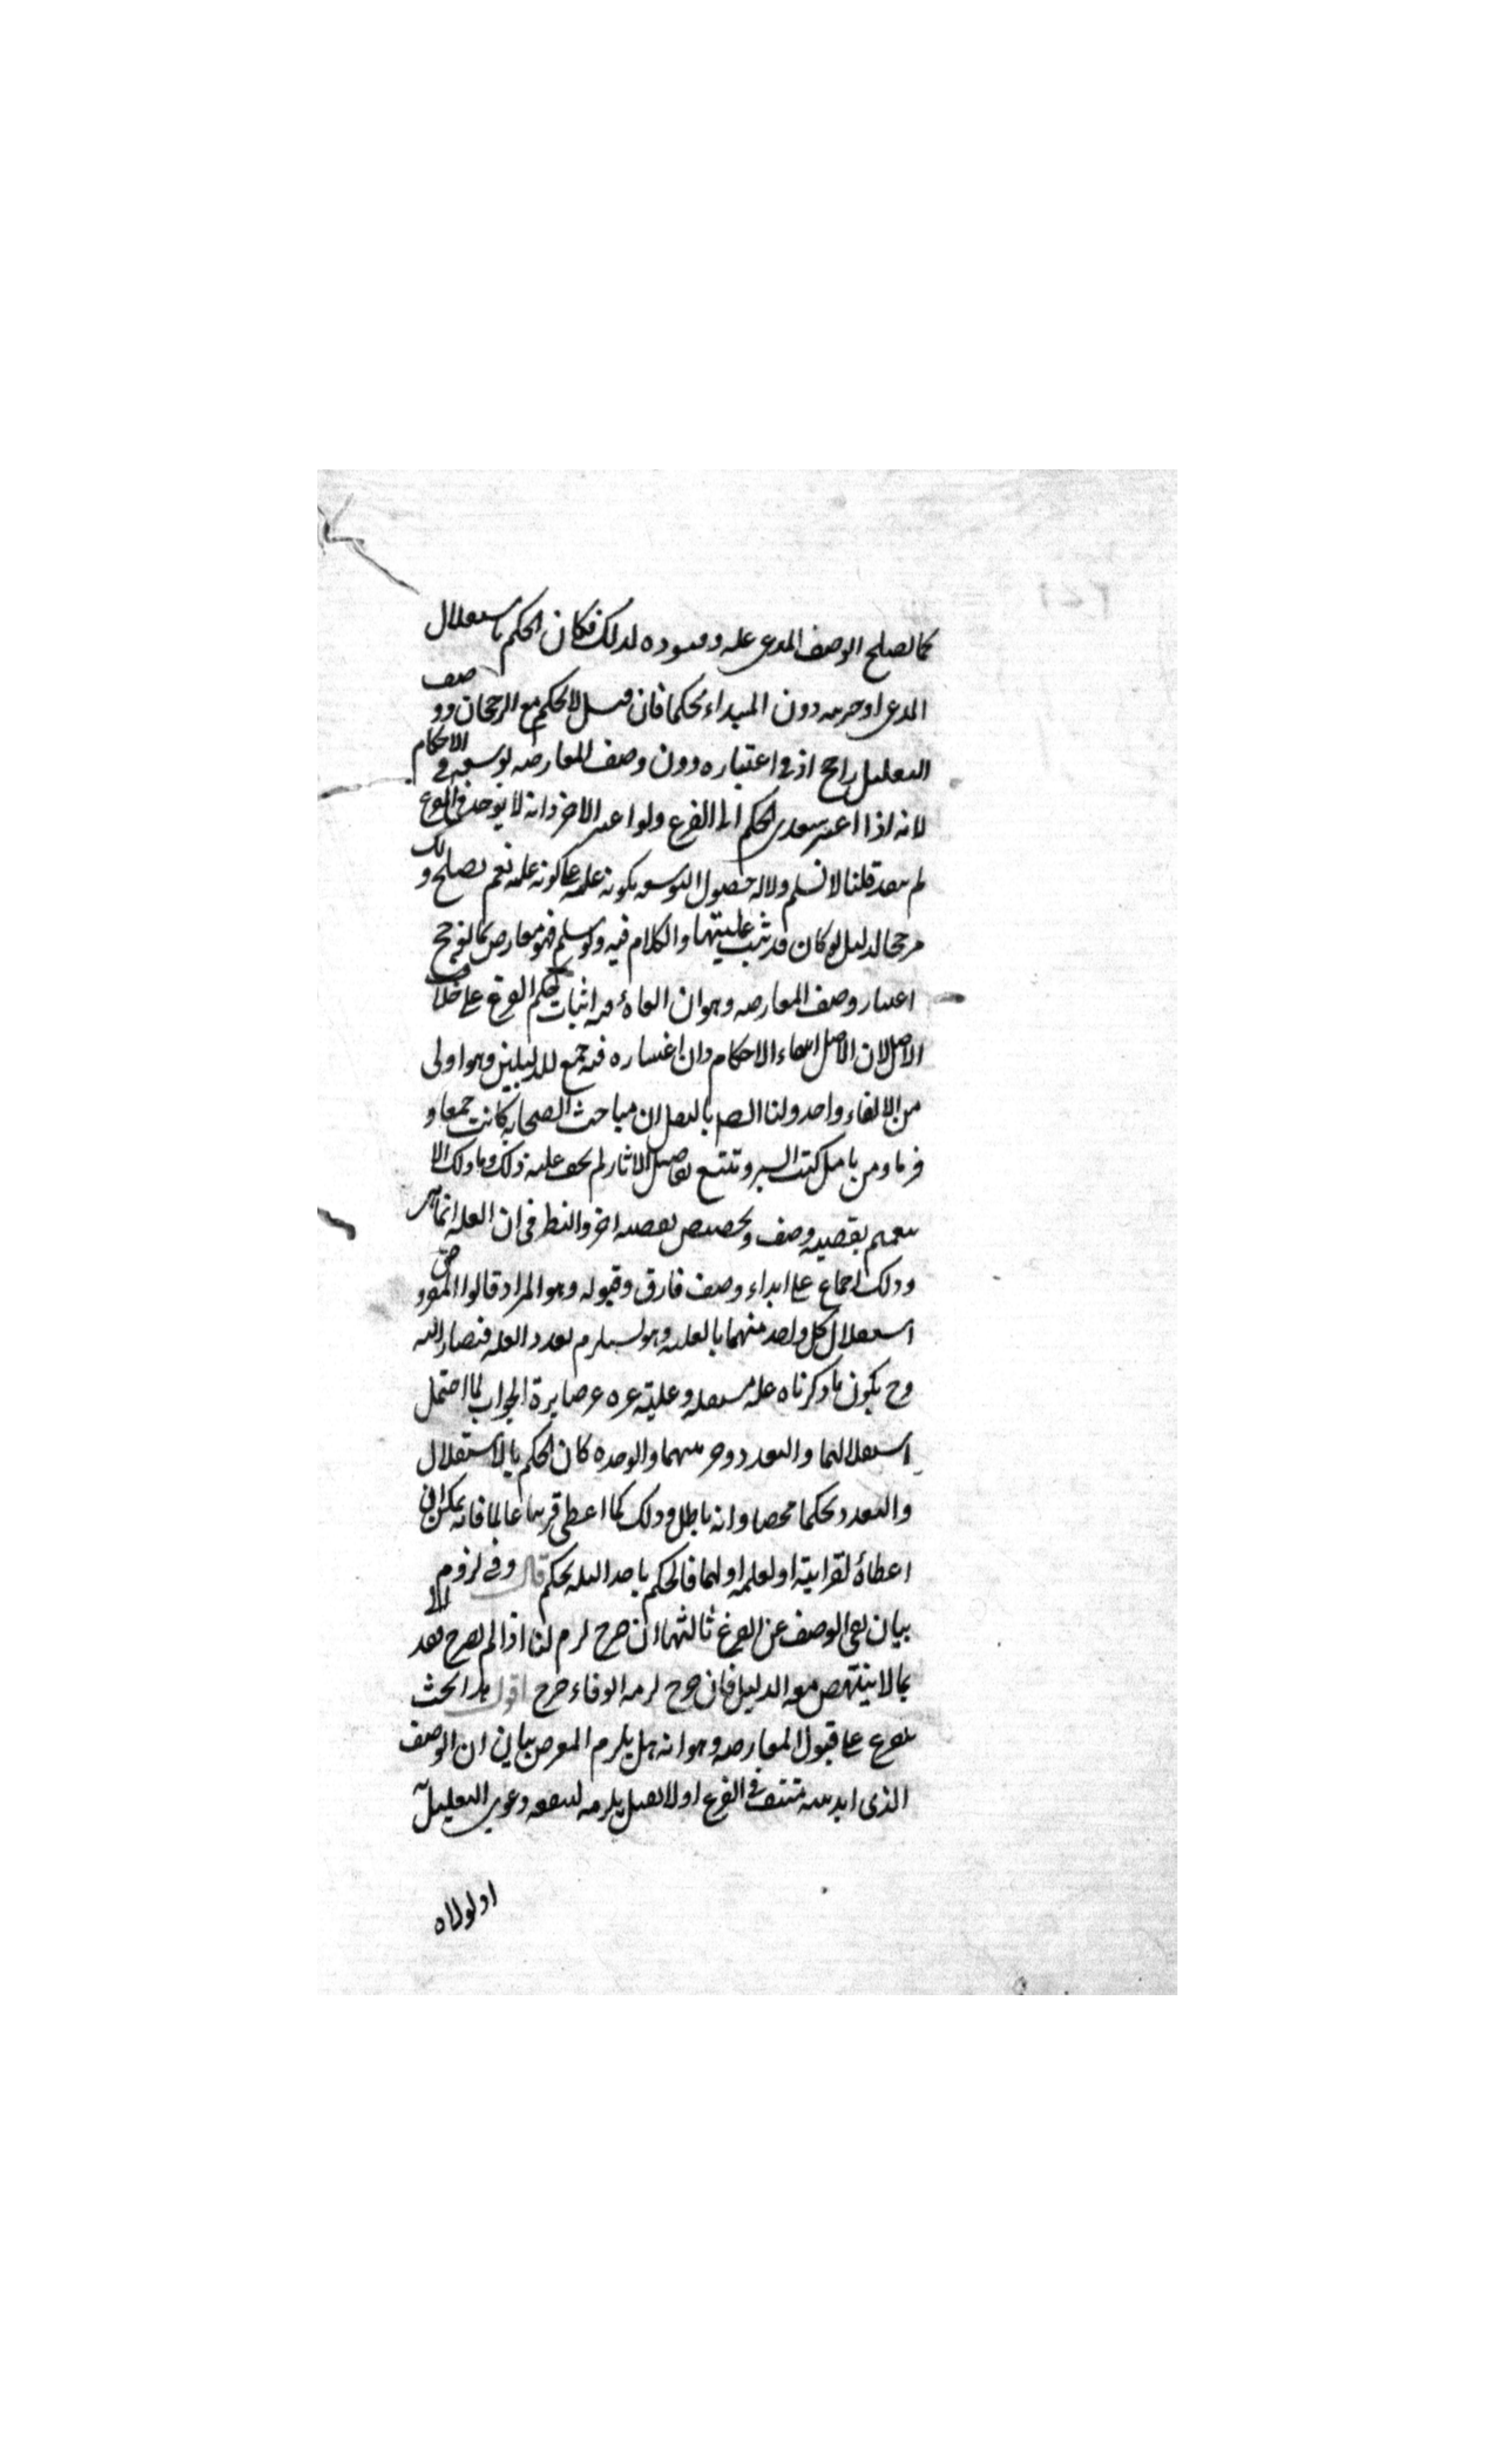 كما يصلح الوصف المدعى علة وقيوده لذلك فكان الحكم باستقلال
المدعى او جزئيته دون المبداء تحكما فان قيل لا تحكم مع الرجحان ووصف
التعليل راجح اذ في اعتباره دون وصف المعارضة توسعة في الاحكام
لانه اذا اعتبر تعدى الحكم الى الفرع ولو اعتبر الاخر وانه لا يوجد في الفرع
لم يتعد قلنا لا نسلم دلالة حصول التوسعة بكونه علة على كونه علة نعم يصلح ذلك
مرجحا لدليل لو كان قد ثبت عليتها والكلام فيه ولو سلم فهو معارض بما يرجح
اعتبار وصف المعارضة وهو ان الغاءه فيه اثبات حكم الفرع على خلاف
الاصل لان الاصل انتفاء الاحكام وان اعتباره فيه جمع للدليلين وهو اولى
من الالغاء واحد ولنا ايضا بالنقل ان مباحث الصحابة كانت جمعا و
فرقا ومن تامل كتب السير وتتبع تفاصيل الاثار لم يخف عليه ذلك وما ذلك الا
تعميم بقضية وصف وتخصيص بقضية اخر والنظر في ان العلة انما
وذلك اجماع على ابداء وصف فارق وقبوله وهو المراد قالوا المفروض
استقلال كل واحد منهما بالعلية وهو يستلزم تعدد العلة فيصار اليه
وح يكون ما ذكرناه علة مستقلة وعلية غيره غير ضايرة الجواب لما احتمل
استقلالهما والتعدد وجزئيتهما والوحدة كان الحكم بالاستقلال
والتعدد تحكما محضا وانه باطل وذلك كما اعطى قريبا عالما فانه يمكن ان
اعطاه لقرابته او لعلمه او لهما فالحكم باحد الثلثة تحكم قال وفي لزوم
بيان نفي الوصف عن الفرع ثالثها ان صرح لزم لنا اذا لم يصرح فقد الا
بما لا ينتهض معه الدليل فان صرح لزمه الوفاء صرح اقول هذا بحث
تفرع على قبول المعارضة وهو انه هل يلزم المعترض بيان ان الوصف
الذي ابديته منتف في الفرع او لا فقيل يلزمه لينفعه دعوى التعليل
اذ لولاه